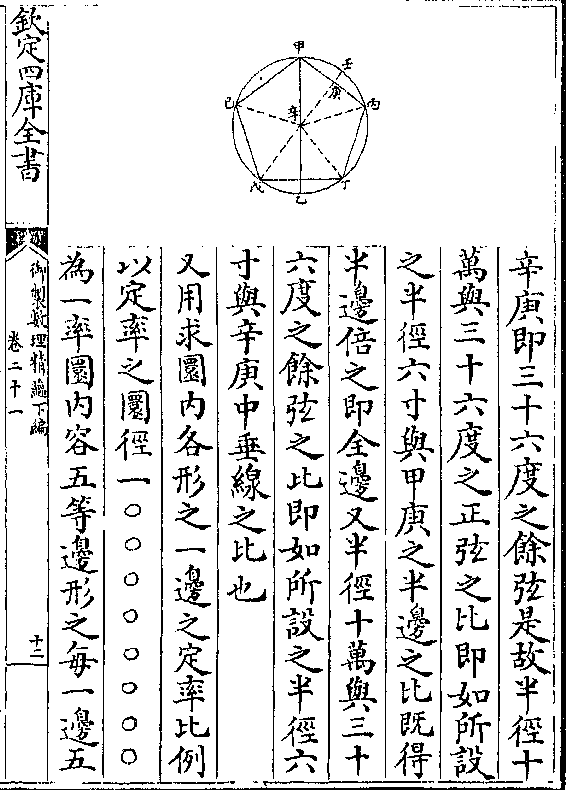 辛庚即三十六度之餘弦是故半徑十
萬與三十六度之正弦之比即如所設
之半徑六寸與甲庚之半邊之比既得
半邊倍之即全邊又半徑十萬與三十
六度之餘弦之比即如所設之半徑六
寸與辛庚中垂線之比也
又用求圜内各形之一邊之定率比例
以定率之圜徑一〇〇〇〇〇〇〇〇
為一率圜内容五等邊形之每一邊五
甲
壬
庚
丙
己
辛
戊
乙
丁
欽定四庫全書
御製數理精蘊下編
卷二十一
十二